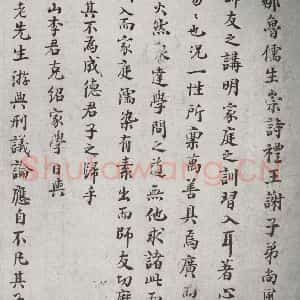 邹鲁儒生崇诗禮王謝子弟尚風
師友之講明家庭之訓習入耳著心
也況一性所稟萬善具焉廣而
火然泉達學問之道無他求諸此而
入而家庭濡染有素出而師友切磨
其不為成德君子之歸乎
山李君克紹家學日與
老先生游典刑議論應自不凡其子
Shufawang.Cn